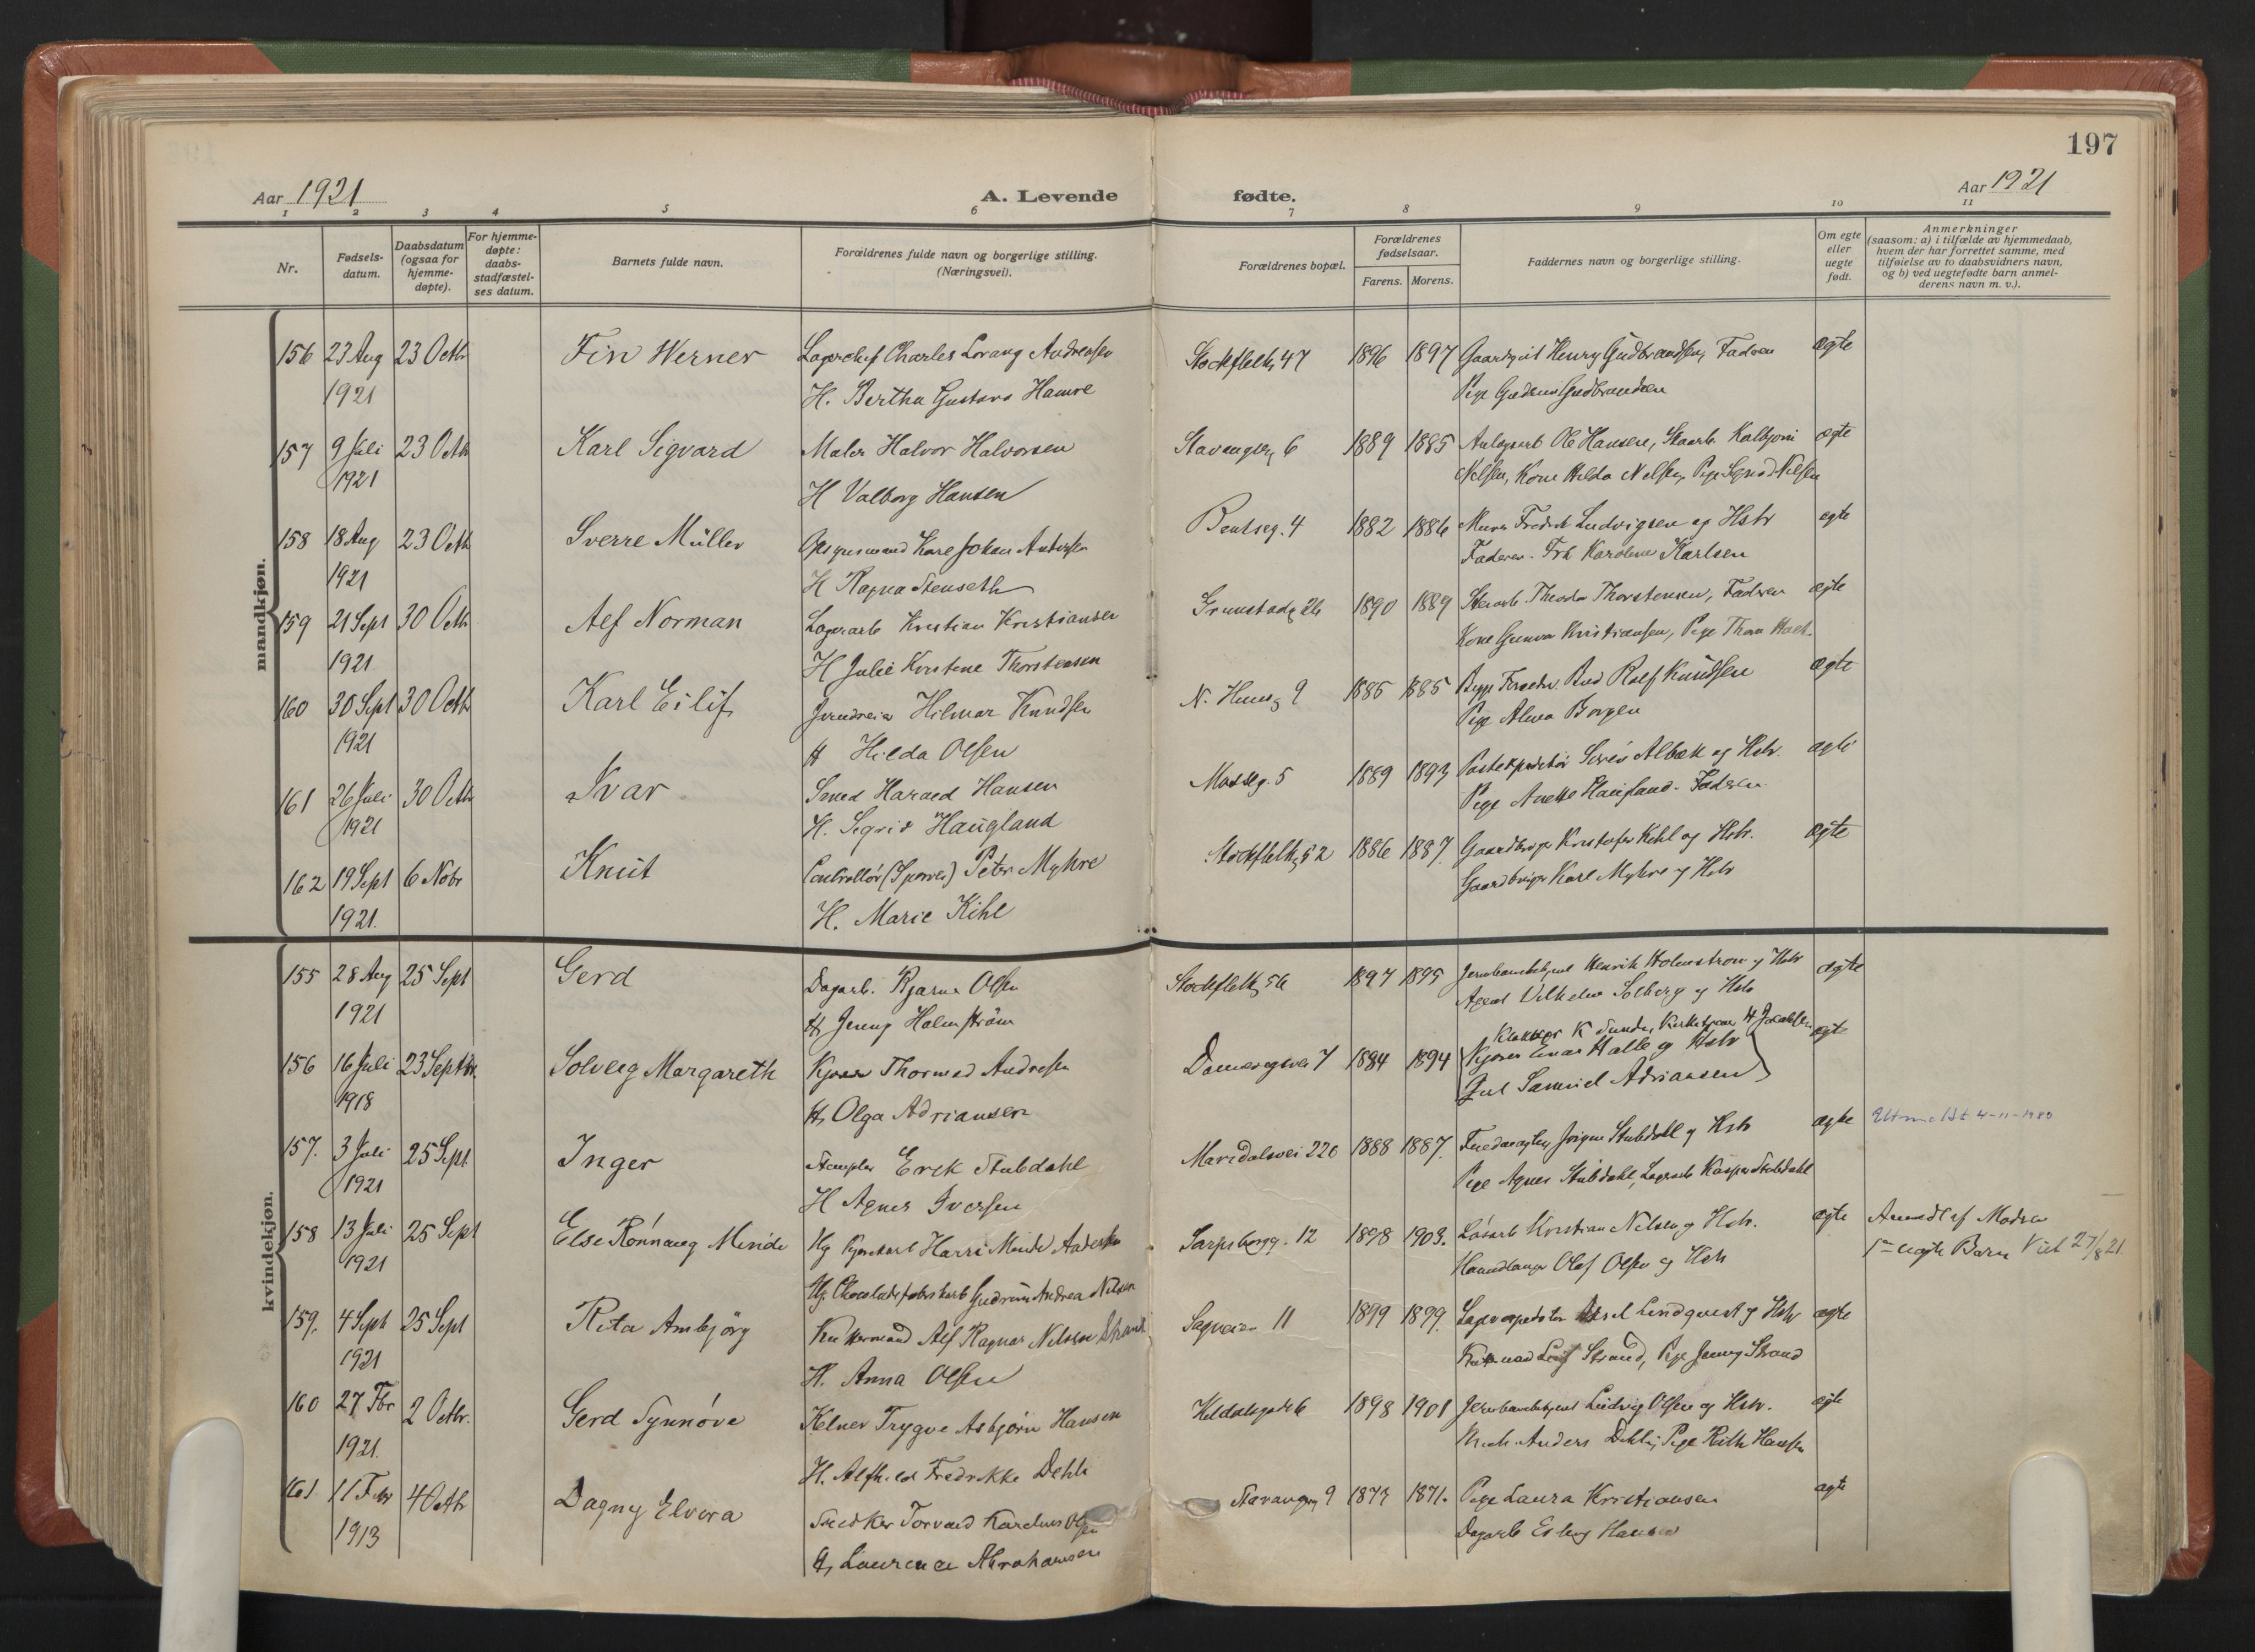 197
Aar 1921
A. Levende fødte.
Aar 1921
1 2 3 4 5 6 7 8 9 10 11
Nr.
Fødsels-
datum.
Daabsdatum
(ogsaa for
hjemme-
døpte).
For hjemme-
døpte:
daabs-
stadfæstel-
ses datum.
Barnets fulde navn.
Forældrenes fulde navn og borgerlige stilling.
(Næringsvei).
Forældrenes bopæl.
Forældrenes
fødselsaar.
Farens. Morens.
Faddernes navn og borgerlige stilling.
Om egte
eller
uegte
født.
Anmerkninger
(saasom: a) i tilfælde av hjemmedaab,
hvem der har forrettet samme, med
tilføielse av to daabsvidners navn,
og b) ved uegtefødte barn anmel-
derens navn m. v.).
mandkjøn.
156 23 Aug 23 Octbr Fin Werner Lagerchef Charles Lorang Andreasen Stockflethg 47 1896 1897 Henry Gudbrandsen, Faderen ægte
1921 H. Bertha Gustava Hamre Pige Gudrun Gudbrandsen
157 9 Juli 23 Octb Karl Sigvard Maler Halvor Halvorsen Stavangerg 6 1889 1885 Ole Hansen, ægte
1921 H Valborg Hansen Nilsen, Kone Hilda Nilsen, Pige Nilsen
158 18 Aug 23 Octb Sverre Müller Kare Johan Andersen Bentseg. 4 1882 1886 Murer Fredrik Ludvigsen og Hstr egte
1921 H Ragna Stenseth Faderen. Frk Karoline Karlsen
159 21 Sept 30 Octb Alf Norman Lagerarb Kristian Kristiansen Grimstadg 26 1890 1889 Thorstensen, Faderen ægte
1921 H Julie Kristine Thorstensen Kone Gunvor Kristiansen, Pige Thora
160 30 Sept 30 Octb Karl Eilif Hilmar Knudsen N. 9 1885 1885 Rolf Knudsen ægte
1921 H Hilda Olsen Pige Alma Borgen
161 26 Juli 30 Octb Ivar Smed Harald Hansen Mosseg. 5 1889 1893 Postekspeditør Albæk og Hstr. ægte
1921 H. Sigrid Haugland Pige Anette Haugland. Faderen.
162 19 Sept 6 Nobr Knut Controllör (Sporvei) Peter Myhre Stockflethg 52 1886 1887 Gaardbruger Kristofer Kihl og Hstr. ægte
1921. H. Marie Kihl Gaardbruger Karl Myhre og Hstr
kvindekjøn.
155 28 Aug 25 Sept Gerd Dagarb. Bjarne Olsen Stockflethg 56 1897 1895 Henrik Holmstrøm og Hstr ægte
1921 H Jenny Holmström Agent Vilhelm Solberg og Hstr
Klokker K Sunde, Kirketjener H Jacobsen
156 16 Juli 23 Septbr. Solveig Margareth Kjører Thormod Andresen 7 1884 1894 Kjører Einar Halle og Hstr ægte
1918 H, Olga Adriansen Samuel Adriansen
157. 3 Juli 25 Sept Inger Erik Stubdahl Maridalsvei 220 1888 1887. Jørgen Stubdahl og Hstr ægte Utmeldt 4-11-1980
1921 H Agnes Iversen Pige Agnes Stubdahl, Lagerarb Kasper Stubdahl
158 13 Juli 25 Sept Else Rönnaug Minde Harri Minde Andersen Sarpsborgg. 12 1898 1903. Løsarb Kristian Nilsen og Hstr. ægte Anmeldt af Moderen
1921 Gudrun Andrea Nilsen Haandlanger Olaf Olsen og Hstr uægte Barn 27/8 21.
159. 4 Sept 25 Sept Rita Ambjörg Alf Ragnar Nilsen Strand Sagveien 11 1899 1899. Lindquist og Hstr ægte
1921 H. Anna Olsen Leif Strand, Pige Jenny Strand
160 27 Fbr 2 Octbr. Gerd Synnöve Kelner Trygve Asbjørn Hansen 6 1898 1901 Ludvig Olsen og Hstr. ægte
1921. H. Alfhild Fredrikke Dehli Mek. Anders Dehli, Pige Ruth Hansen
161 11 Febr 4 Octb Dagny Elvera Snedker Torvald Olsen Stavangerg 9 1873 1871. Pige Laura Kristiansen ægte
1913 H, Laurence Abrahamsen Dagarb Hansen